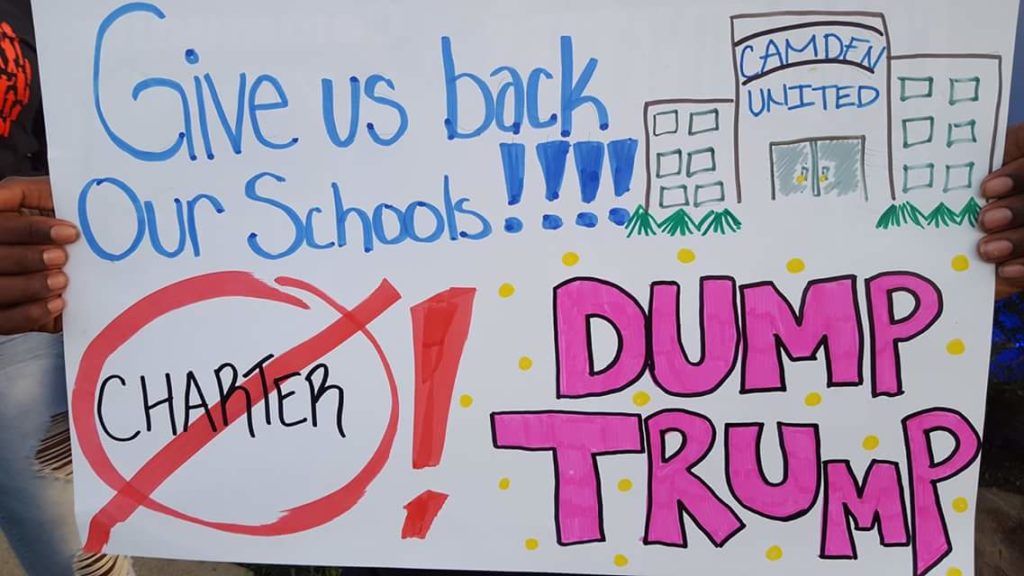 Give us back
Our Schools!!!!
CAMDEN
UNITED
CHARTER !
DUMP
TRUMP